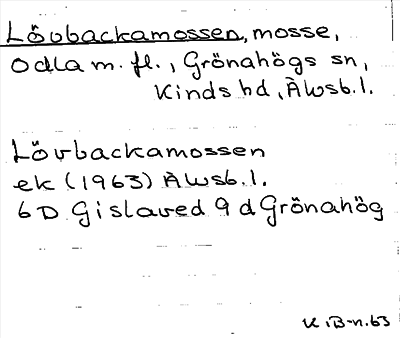 Lövbackamossen, mosse,
Odla m. fl., Grönahögs sn,
Kinds hd, Älvsb. l.
Lövbackamossen
ek (1963) Älvsb. l.
6D Gislaved 9 d Grönahög
K. B-n. 63